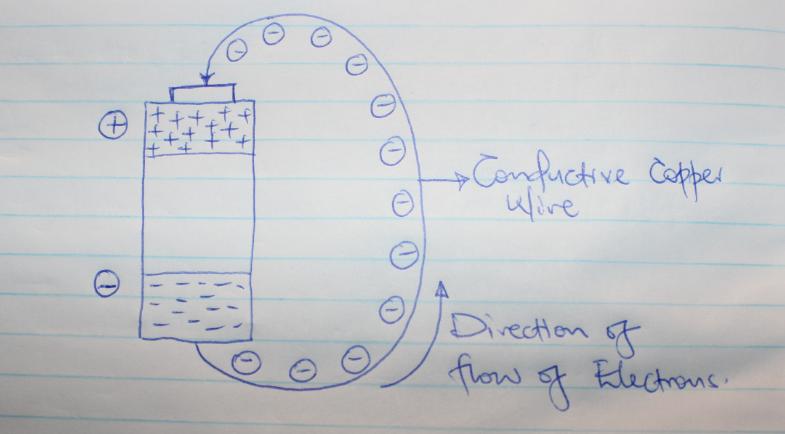 Conductive Copper
Wire
Direction of
flow of Electrons.